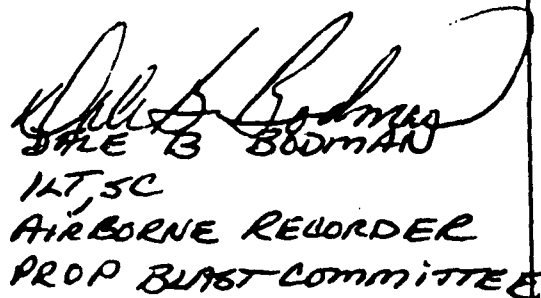 Dale B Bodman
DALE B BODMAN
1LT, SC
AIRBORNE RECORDER
PROP BLAST COMMITTEE